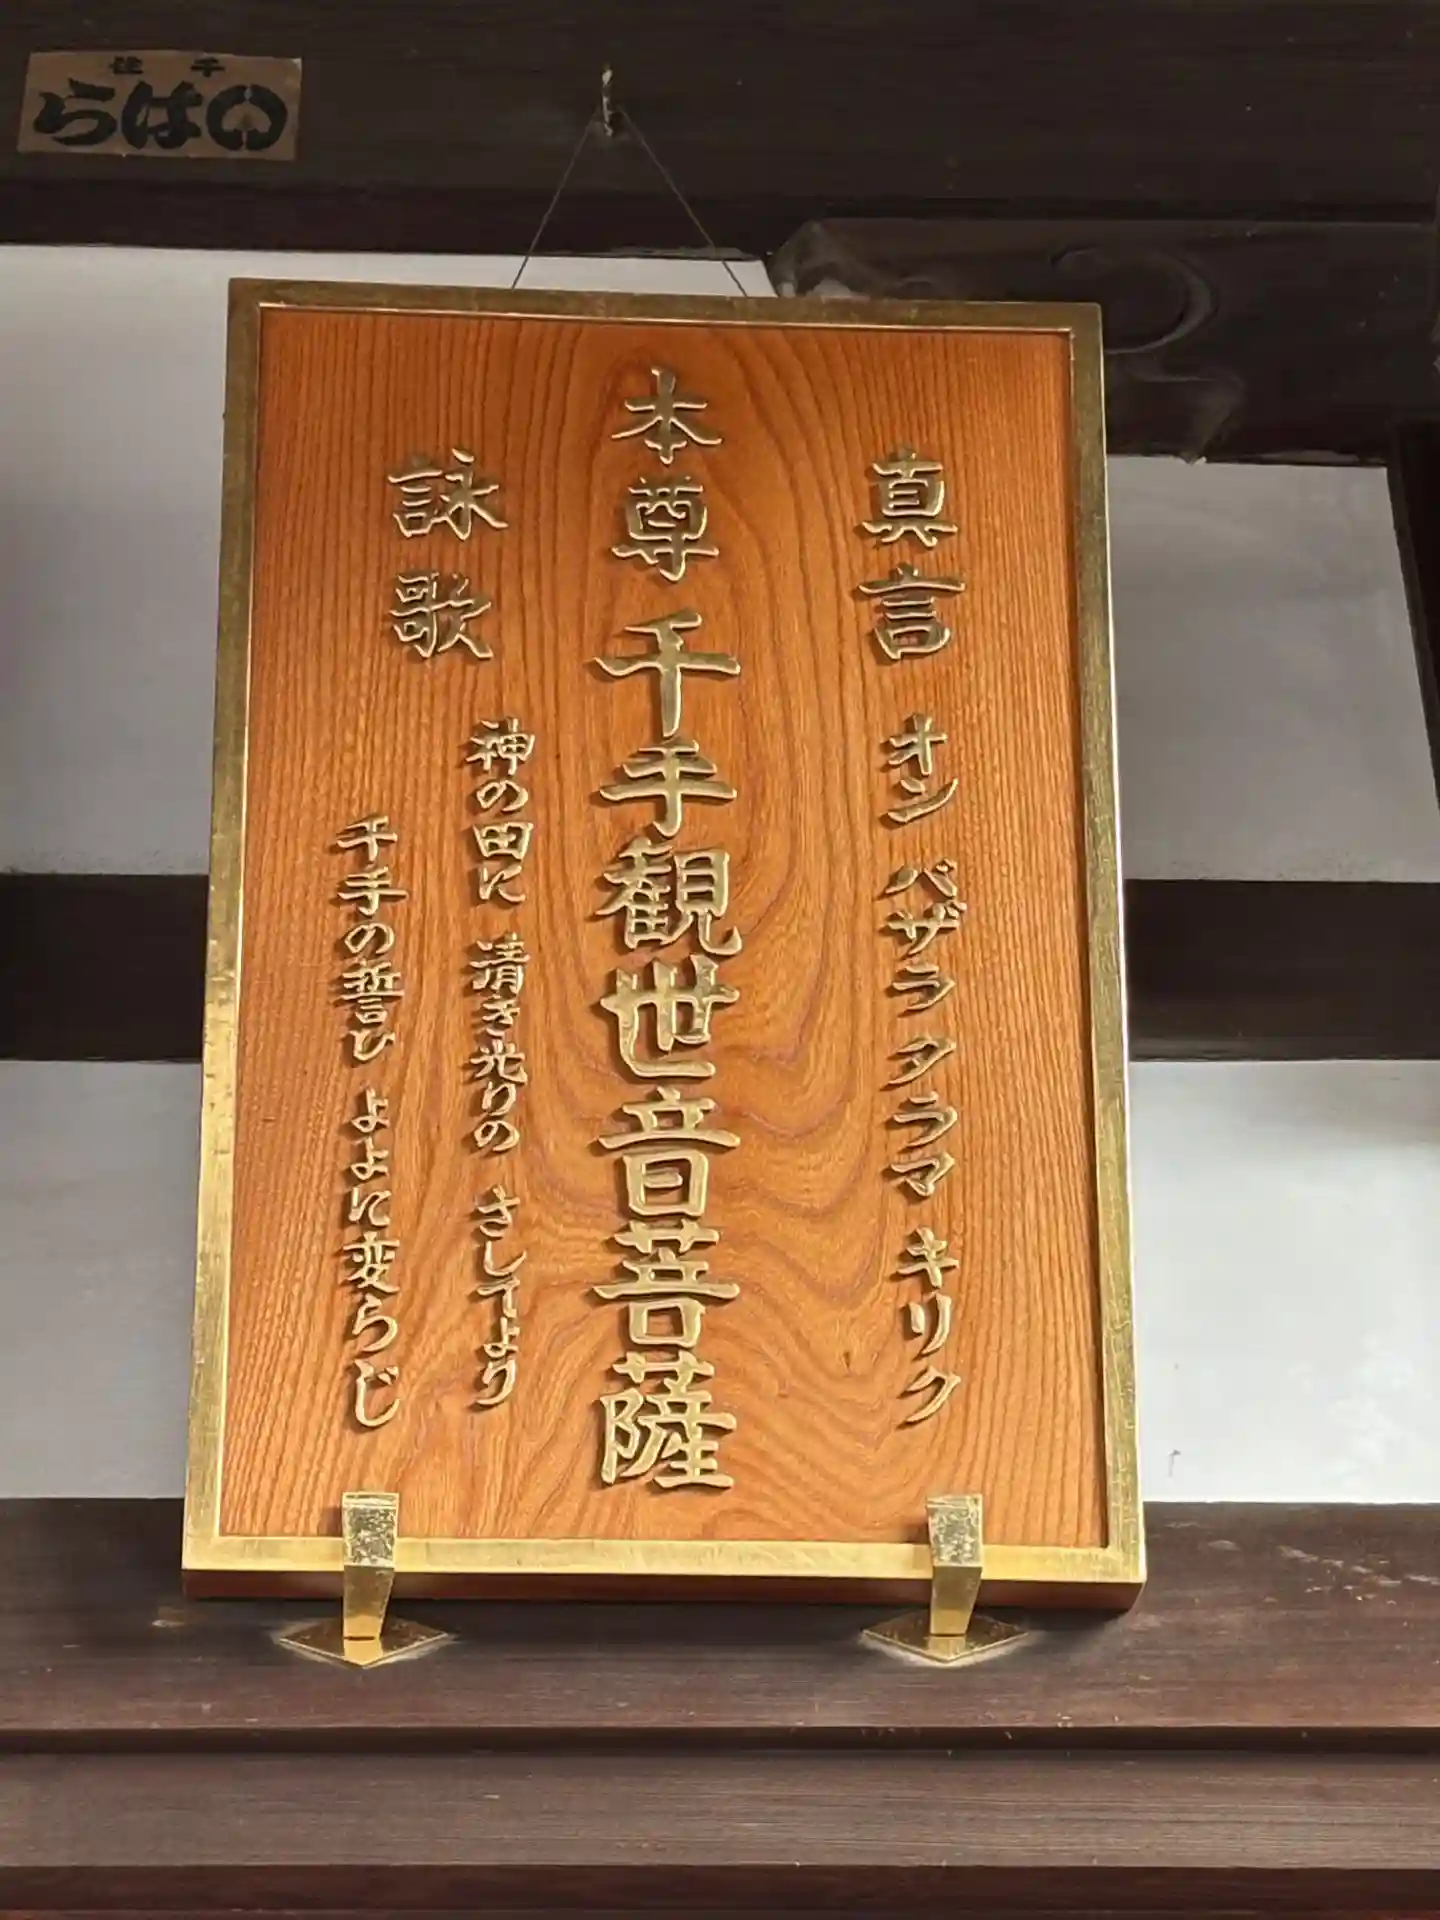 千住
いはら
真言 オン バザラ タラマ キリク
本尊 千手観世音菩薩
詠歌
神の田に 清き光りの さしてより
千手の誓ひ よよに変らじ